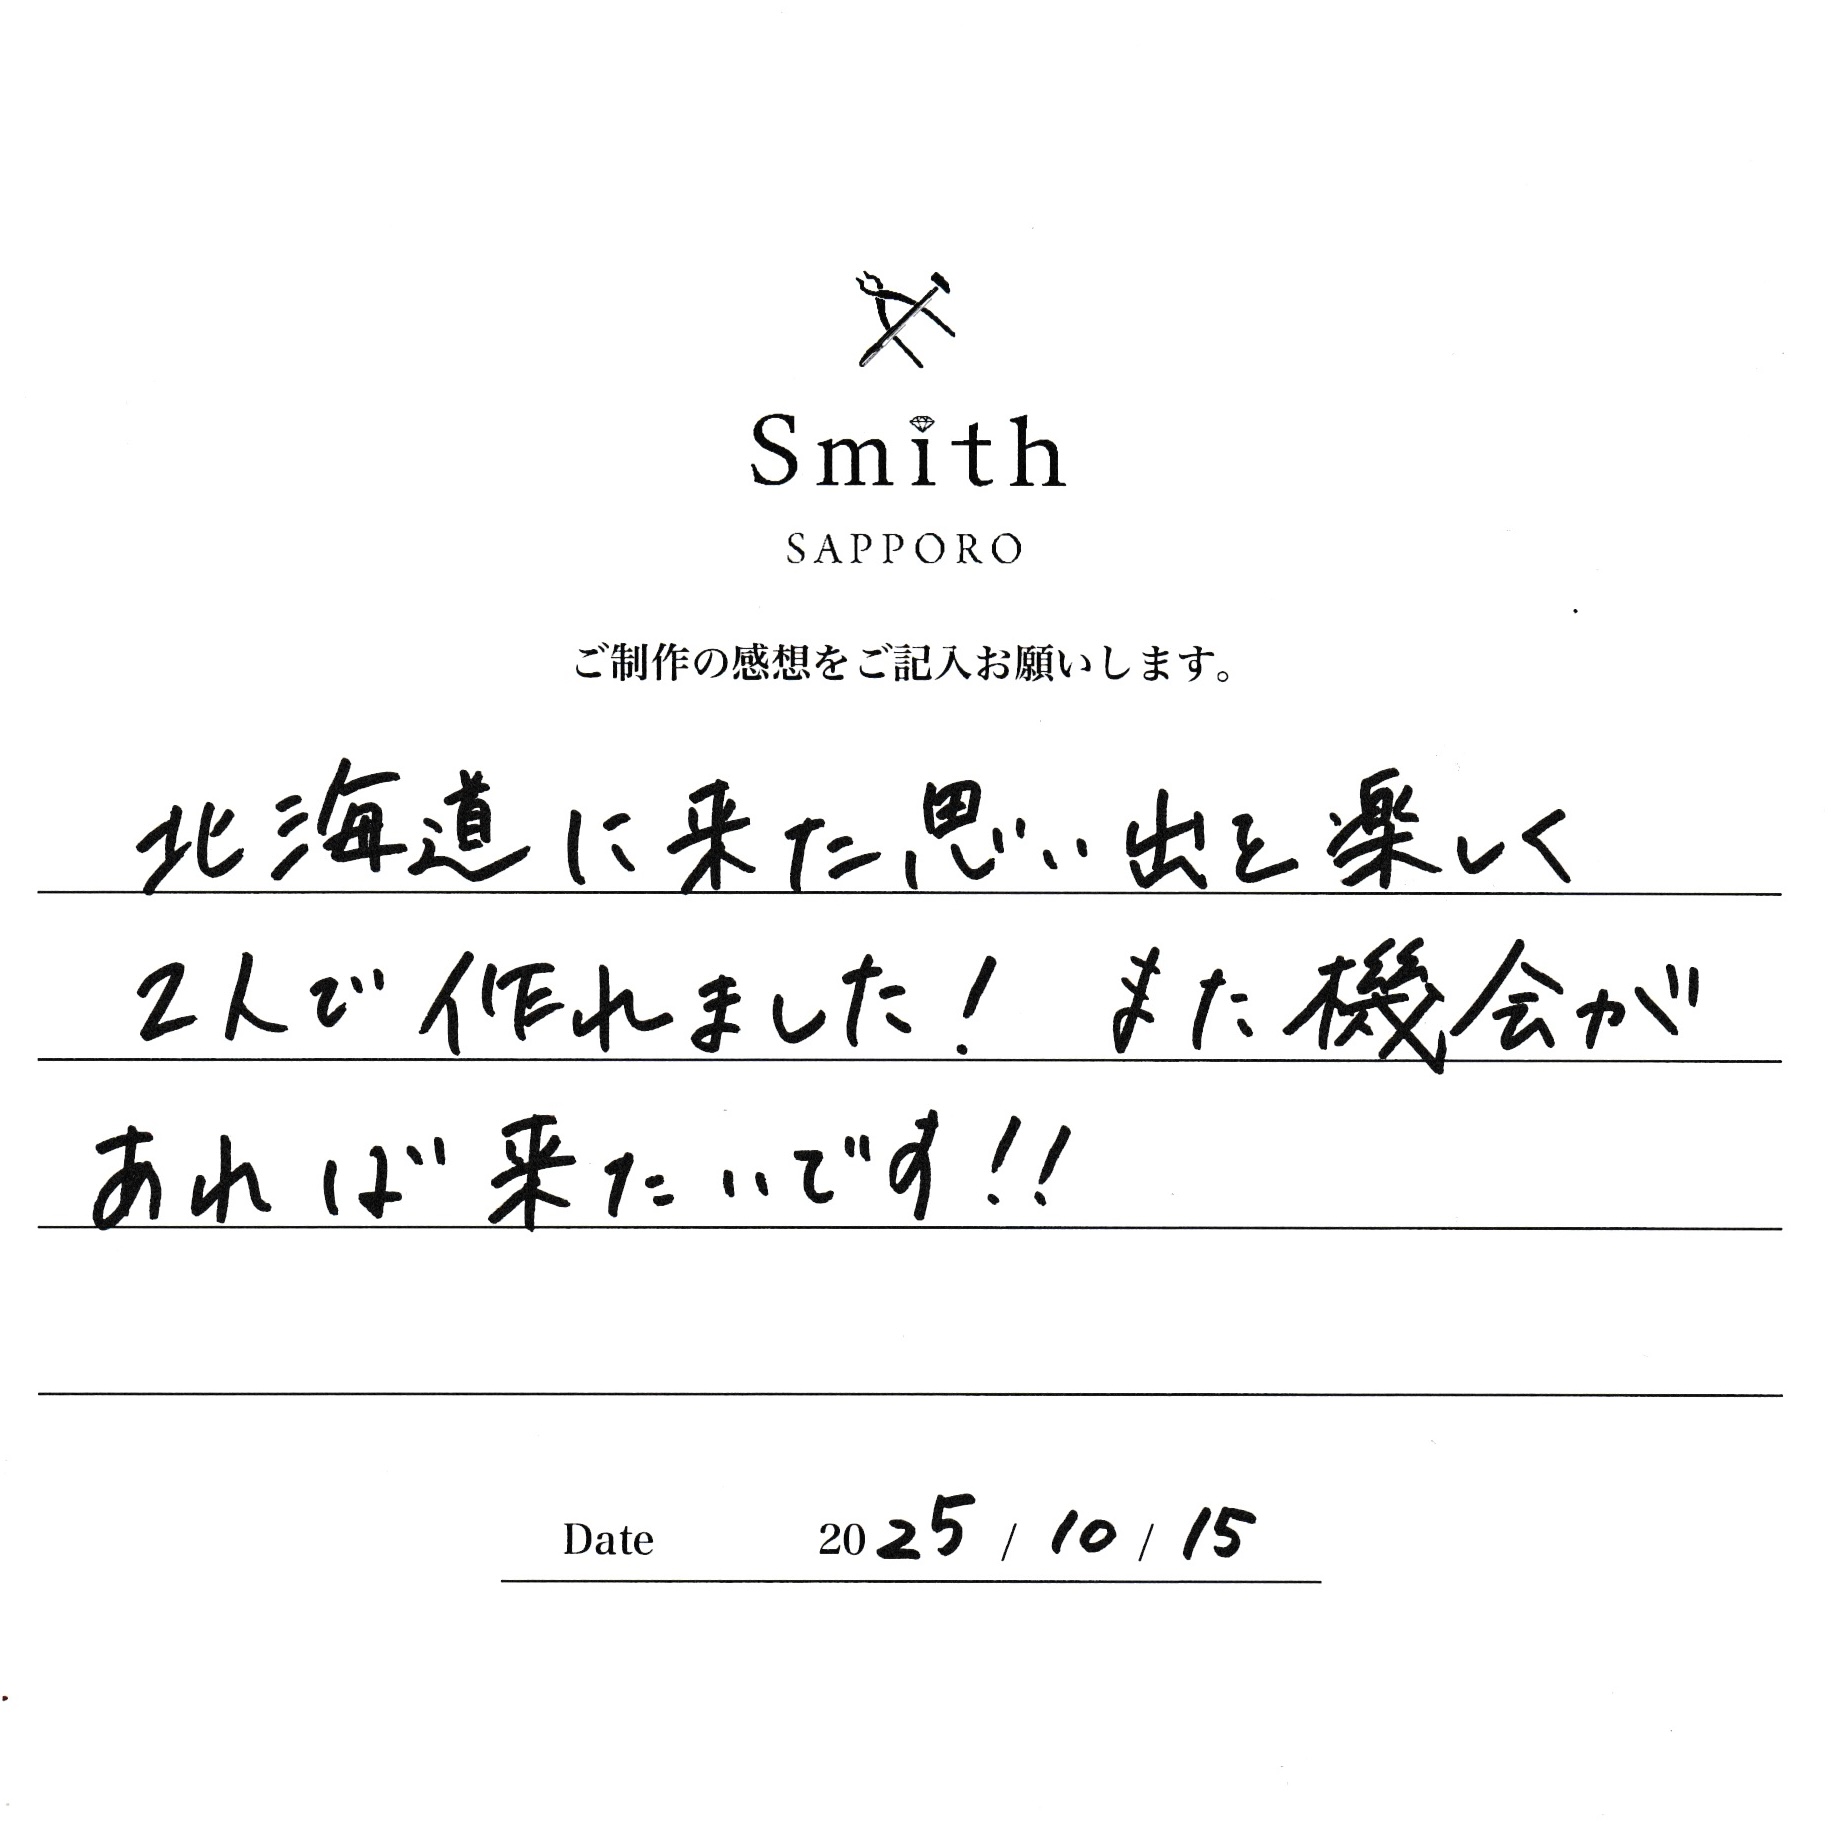 Smith
SAPPORO
ご制作の感想をご記入お願いします。
北海道に来た思い出を楽しく
2人で作れました! また機会が
あれば来たいです!!
Date 2025 / 10 / 15